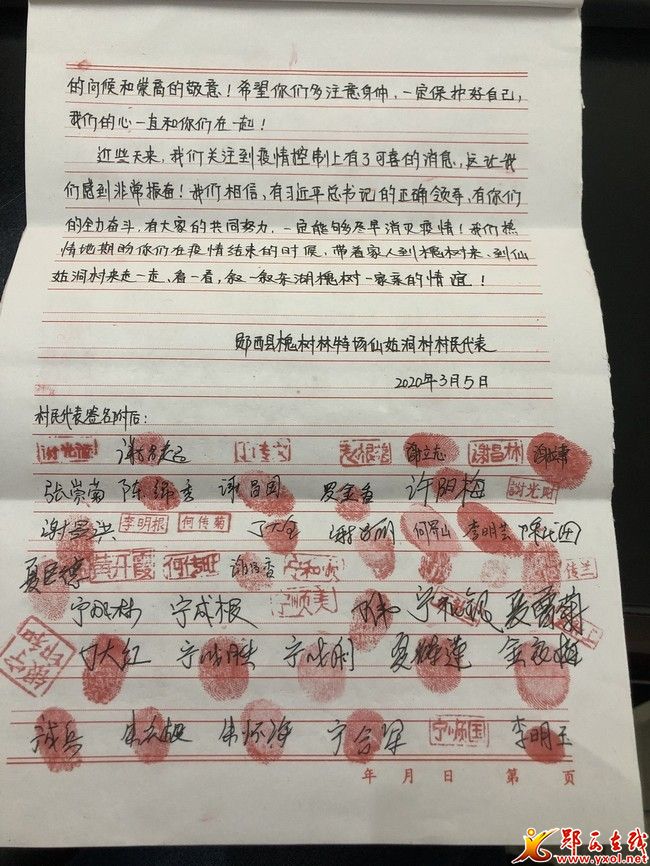 的问候和崇高的敬意！希望你们多注意身体，一定保护好自己，
我们的心一直和你们在一起！
近些天来，我们关注到疫情控制上有了可喜的消息，这让我
们感到非常振奋！我们相信，有习近平总书记的正确领导，有你们
的全力奋斗，有大家的共同努力，一定能够尽早消灭疫情！我们热
情地期盼你们在疫情结束的时候，带着家人到槐树来、到仙
姑洞村来走一走、看一看，叙一叙东湖槐树一家亲的情谊！
郧西县槐树林特场仙姑洞村村民代表
2020年3月5日
村民代表签名附后：
谢立志 谢昌林
张崇菊 陈绵秀 谢昌国 罗金香 许明梅 謝光明
谢昌洪 李明根 何传菊 丁大全 李明芸
黄开霞 何传旺 宁和顺 传兰
宁成根 宁顺美
丁大红 宁成胜 宁成刚 夏锦莲
宁合军 宁顺国 李明玉
年 月 日 第 页
郧西在线
www.yxol.net